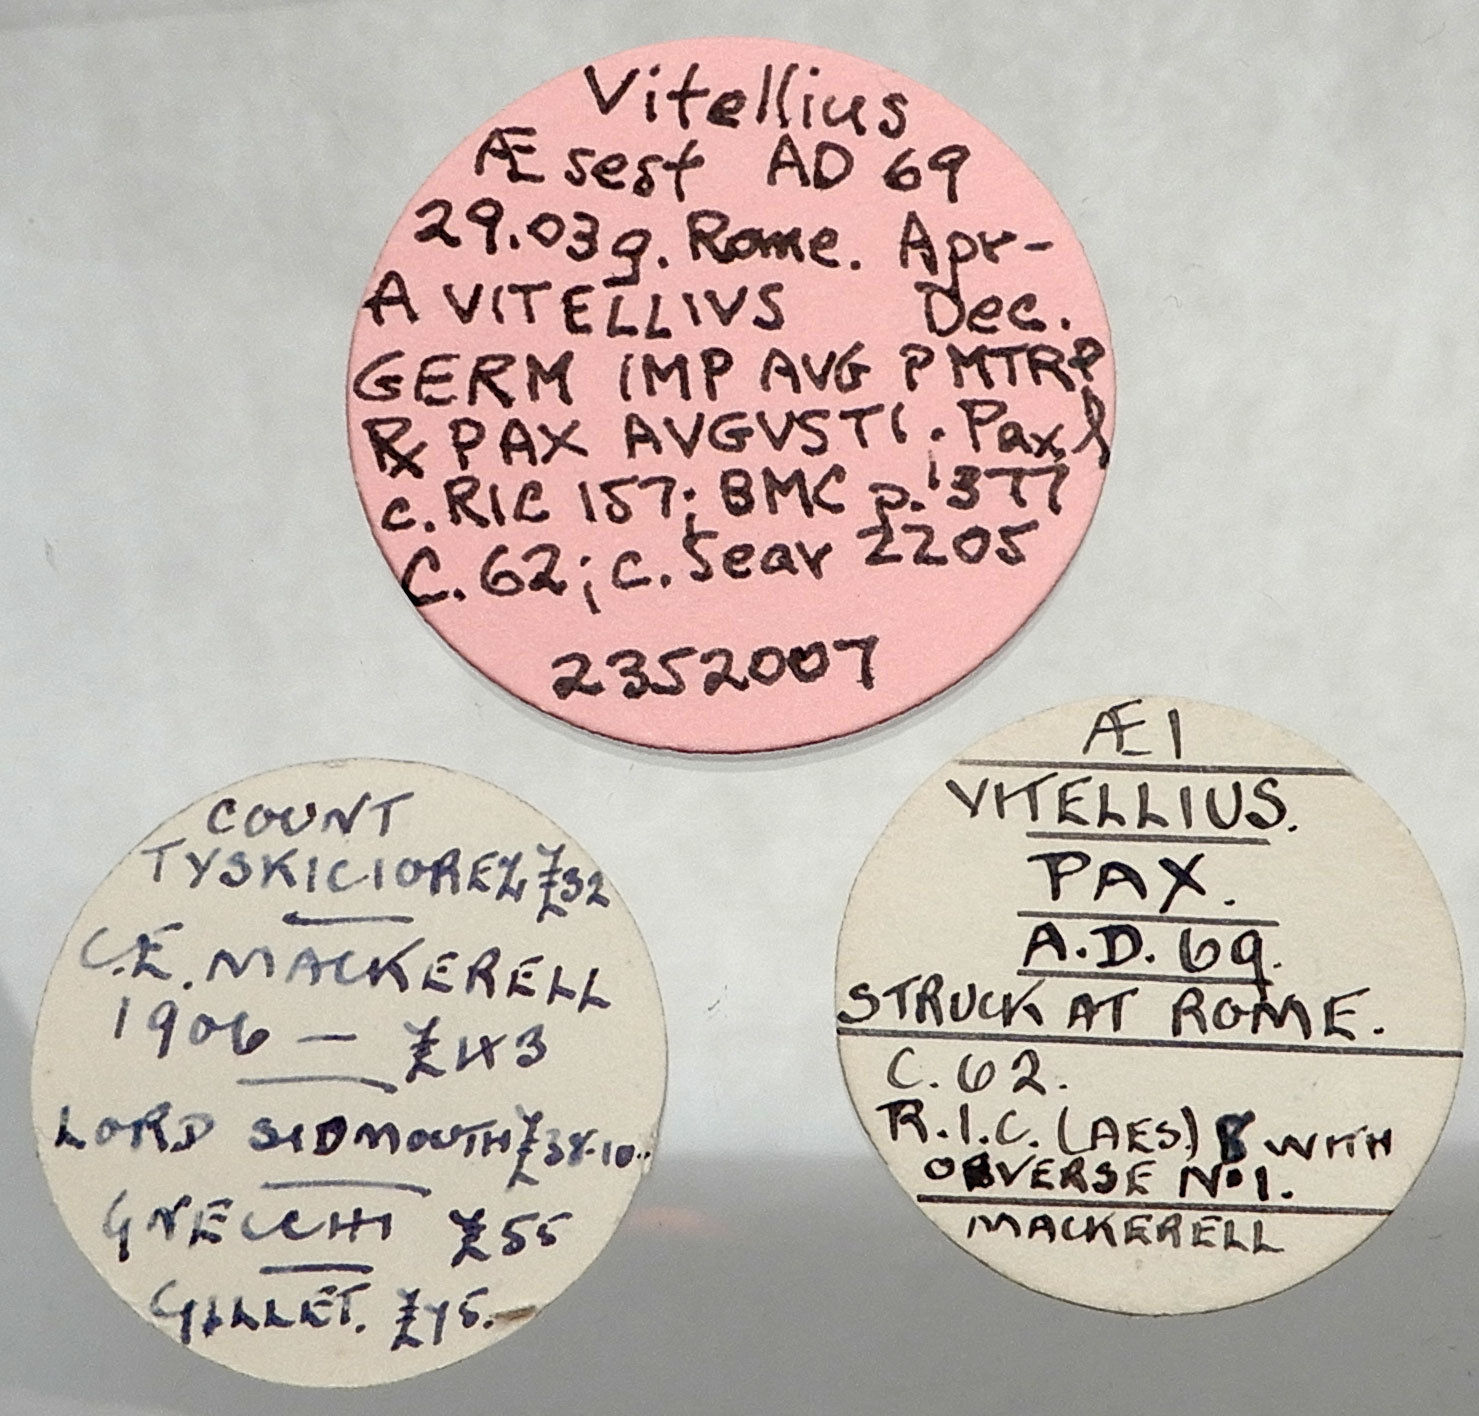 Vitellius
Æ sest AD 69
29.03g. Rome. Apr-
A VITELLIVS Dec.
GERM IMP AVG P MTRP
℞ PAX AVGVSTI. Pax l
c. RIC 157; BMC p. 377
C. 62; c. Sear 2205
2352007
COUNT
TYSKICIOREZ £32
C.E. MACKERELL
1906 —
LORD SIDMOUTH
GNECCHI £55
GILLET.
Æ I
VITELLIUS.
PAX.
A.D. 69.
STRUCK AT ROME.
C. 62.
R.I.C. (AES) 8 WITH
OBVERSE No 1.
MACKERELL